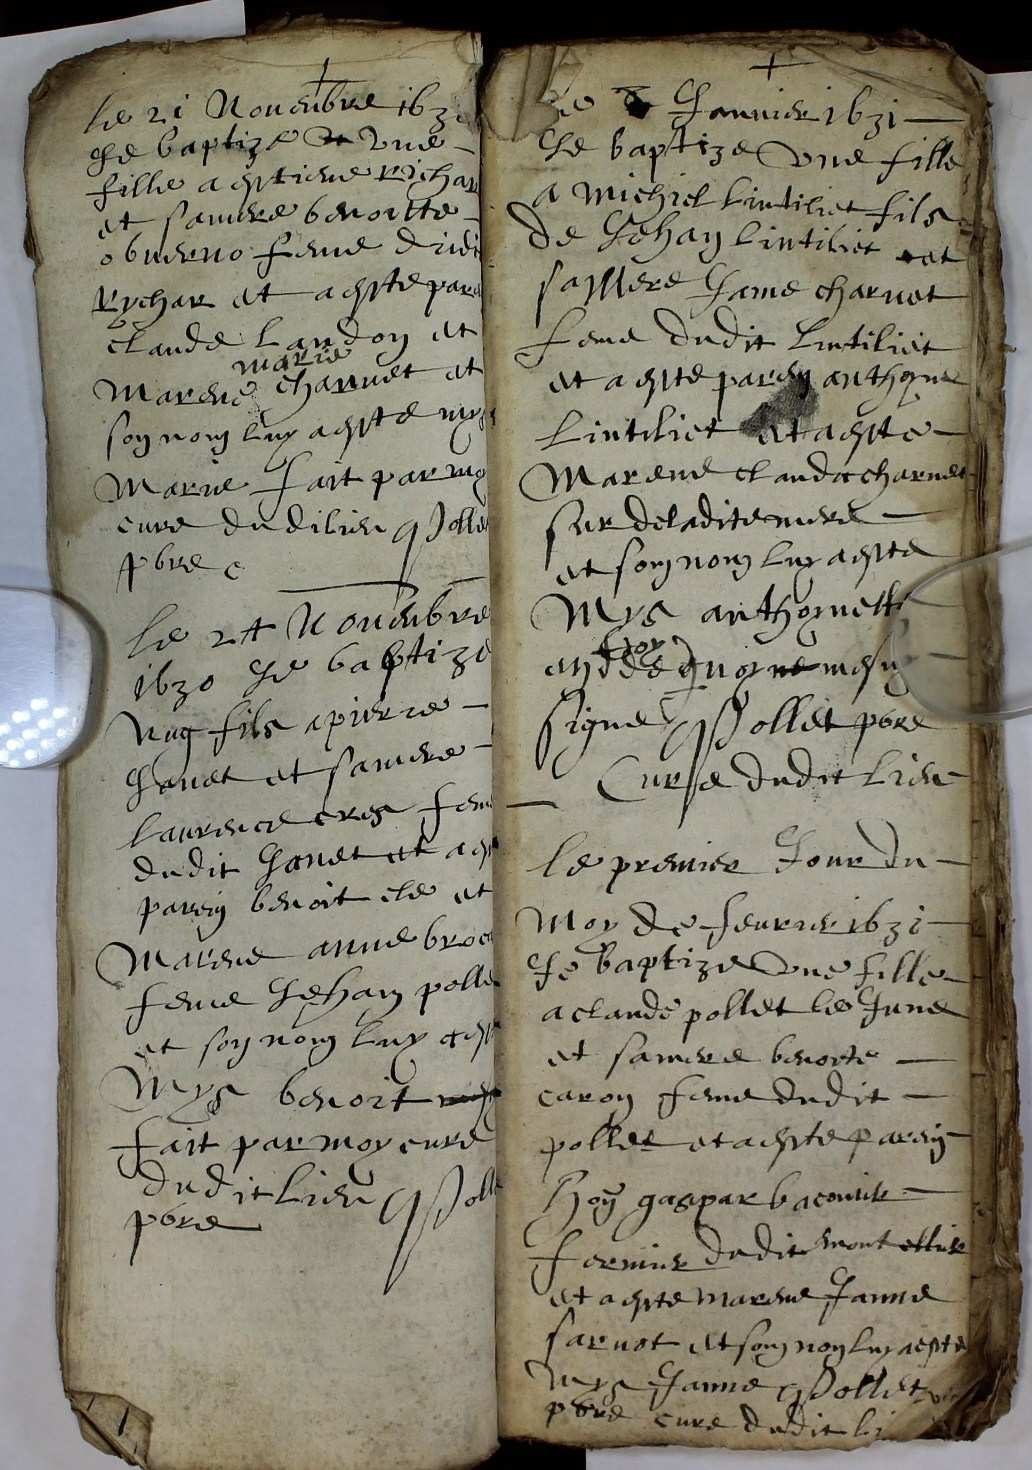 Le 21 Nouenbre 163
Je baptize une
fille a estiene richar
et sa mere benoitte
feme dudi
Rychar et a este pare
claude Landon et
marie
Marene charuet et
son nom luy a este mys
Marie fait par moy
cure dudi lieu Polle
pbre
Le 24 Nouenbre
1630 Je baptize
ung fils a pierre
Janet et sa mere
Laurence cres feme
dudit Janet et a est
parin benoit cle et
Marene anne broc
feme Jehan polle
et son nom luy a est
Mys benoit
fait par moy cure
dudit Lieu Polle
pbre
Le Januier 1631
Je baptize une fille
a michiel Lintiliet fils
de Jehan Lintiliet et
sa mere Jane charuet
feme dudit Lintiliet
et a este parin anthoyne
Lintiliet et a este
Marene clauda charuet
sur de ladite mere
et son nom luy a este
Mys anthoynette
en de quoy me suy
signe Pollet pbre
Cure dudit Lieu
Le premier Jour du
Moy de feurier 1631
Je baptize une fille
a claude pollet le June
et sa mere benoite
caron feme dudit
pollet et a este parin
hon gaspar bacomier
fermier dudit montellier
et a este marene Janne
saruot et son non luy a este
Mys Janne Pollet
pbre cure dudit li